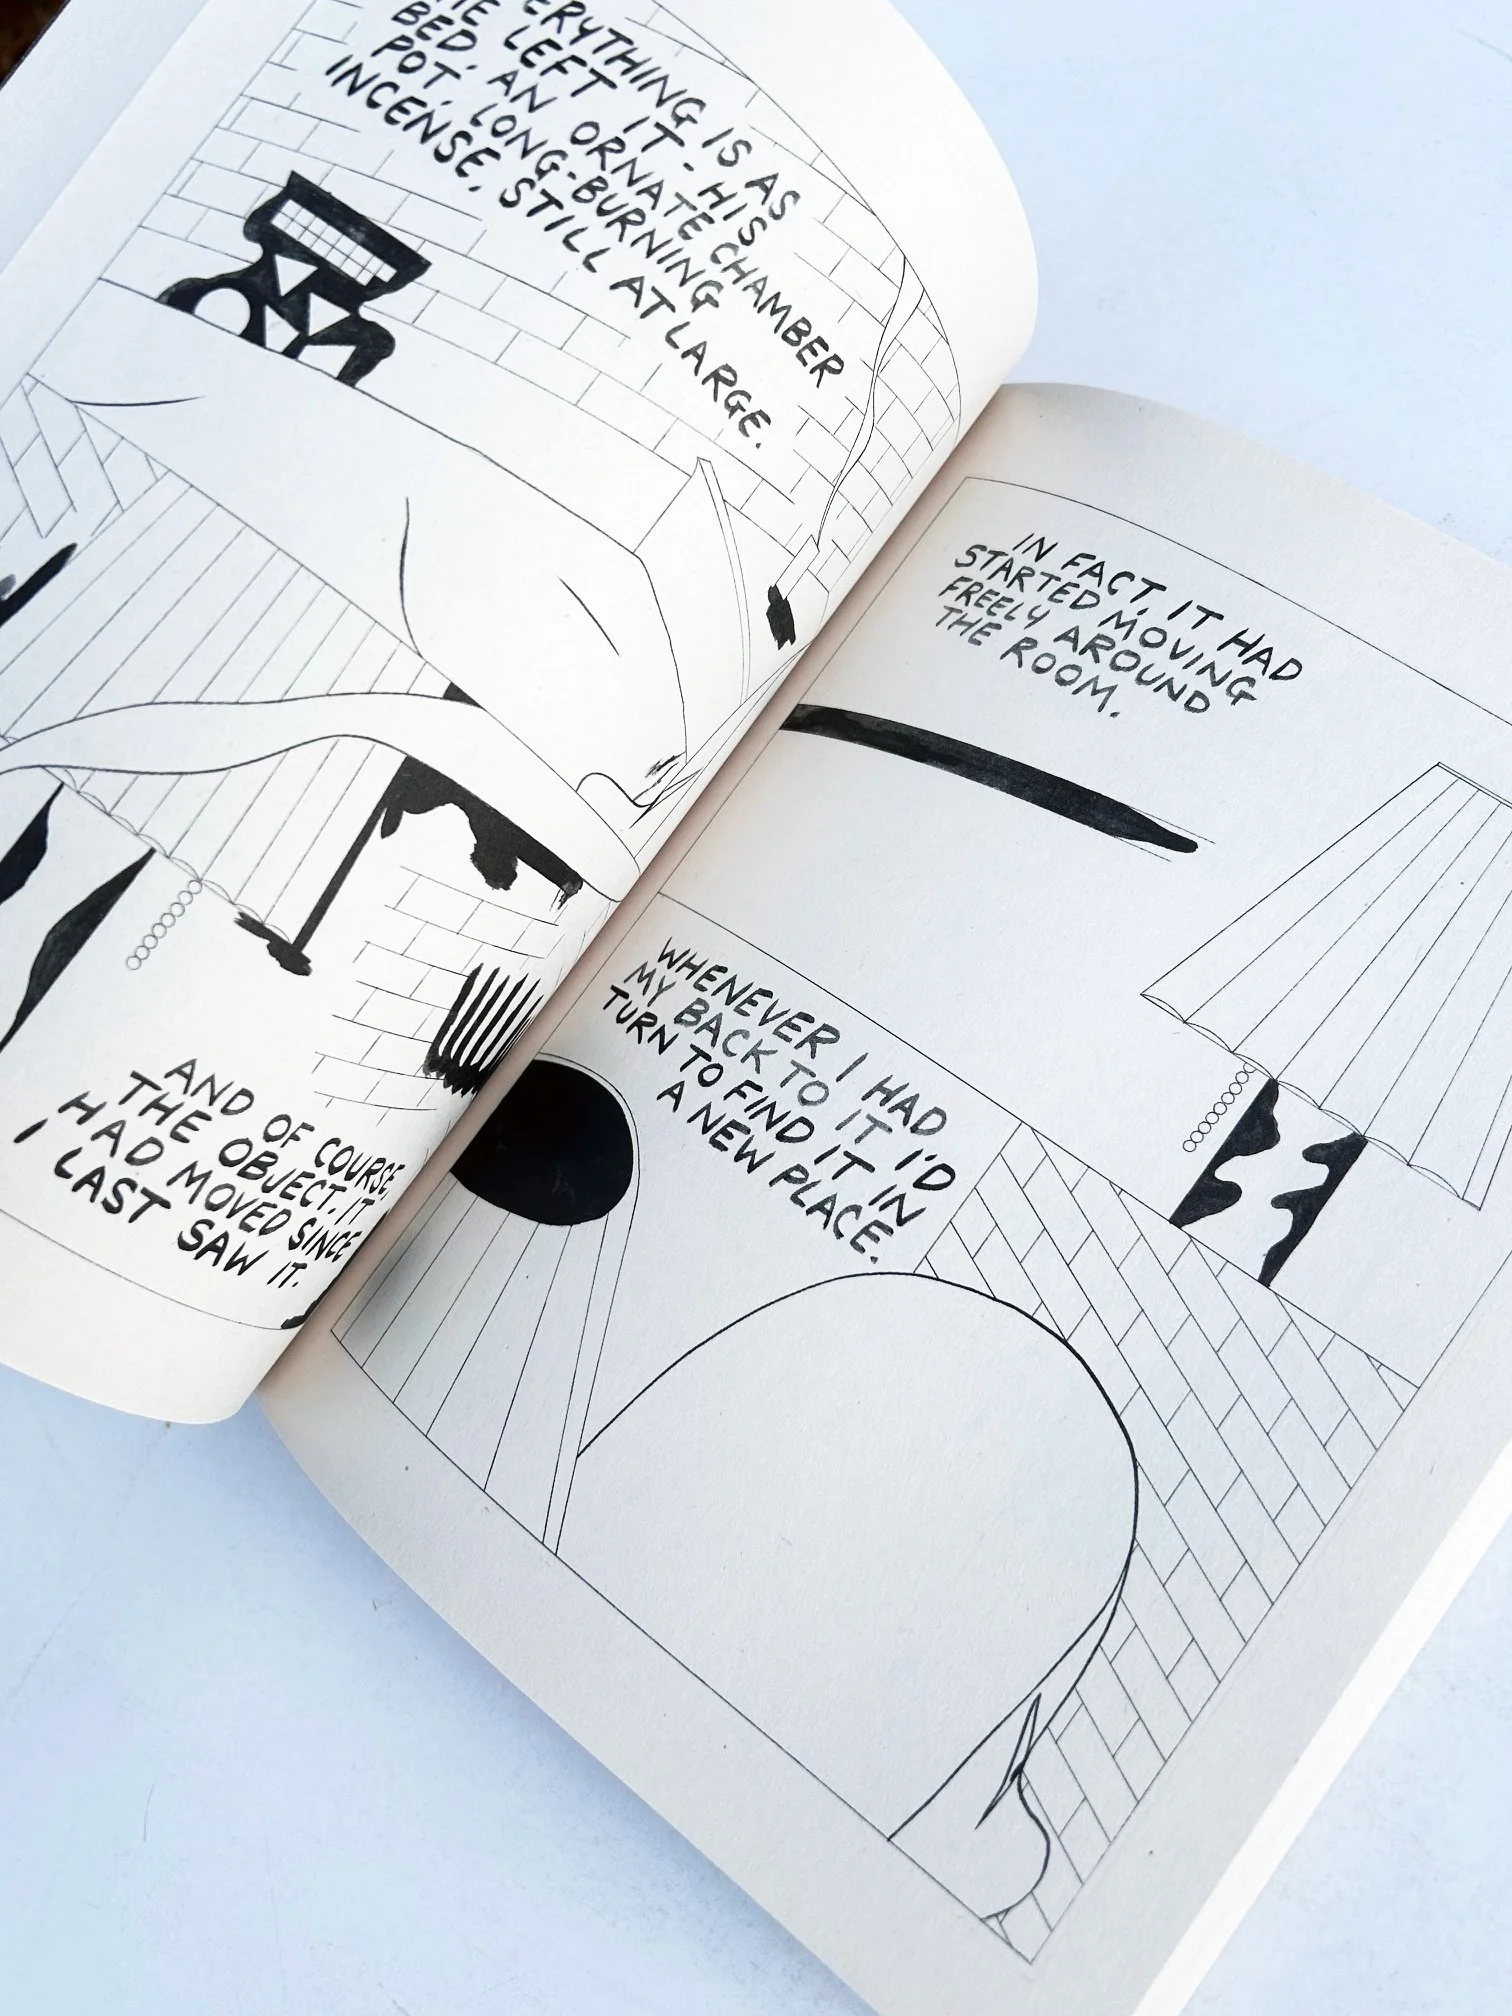 IS AS
LEFT IT - HIS
BED. AN ORNATE CHAMBER
POT. LONG-BURNING
INCENSE, STILL AT LARGE.
AND OF COURSE,
THE OBJECT. IT
HAD MOVED SINCE
I LAST SAW IT.
IN FACT, IT HAD
STARTED MOVING
FREELY AROUND
THE ROOM.
WHENEVER I HAD
MY BACK TO IT I'D
TURN TO FIND IT IN
A NEW PLACE.